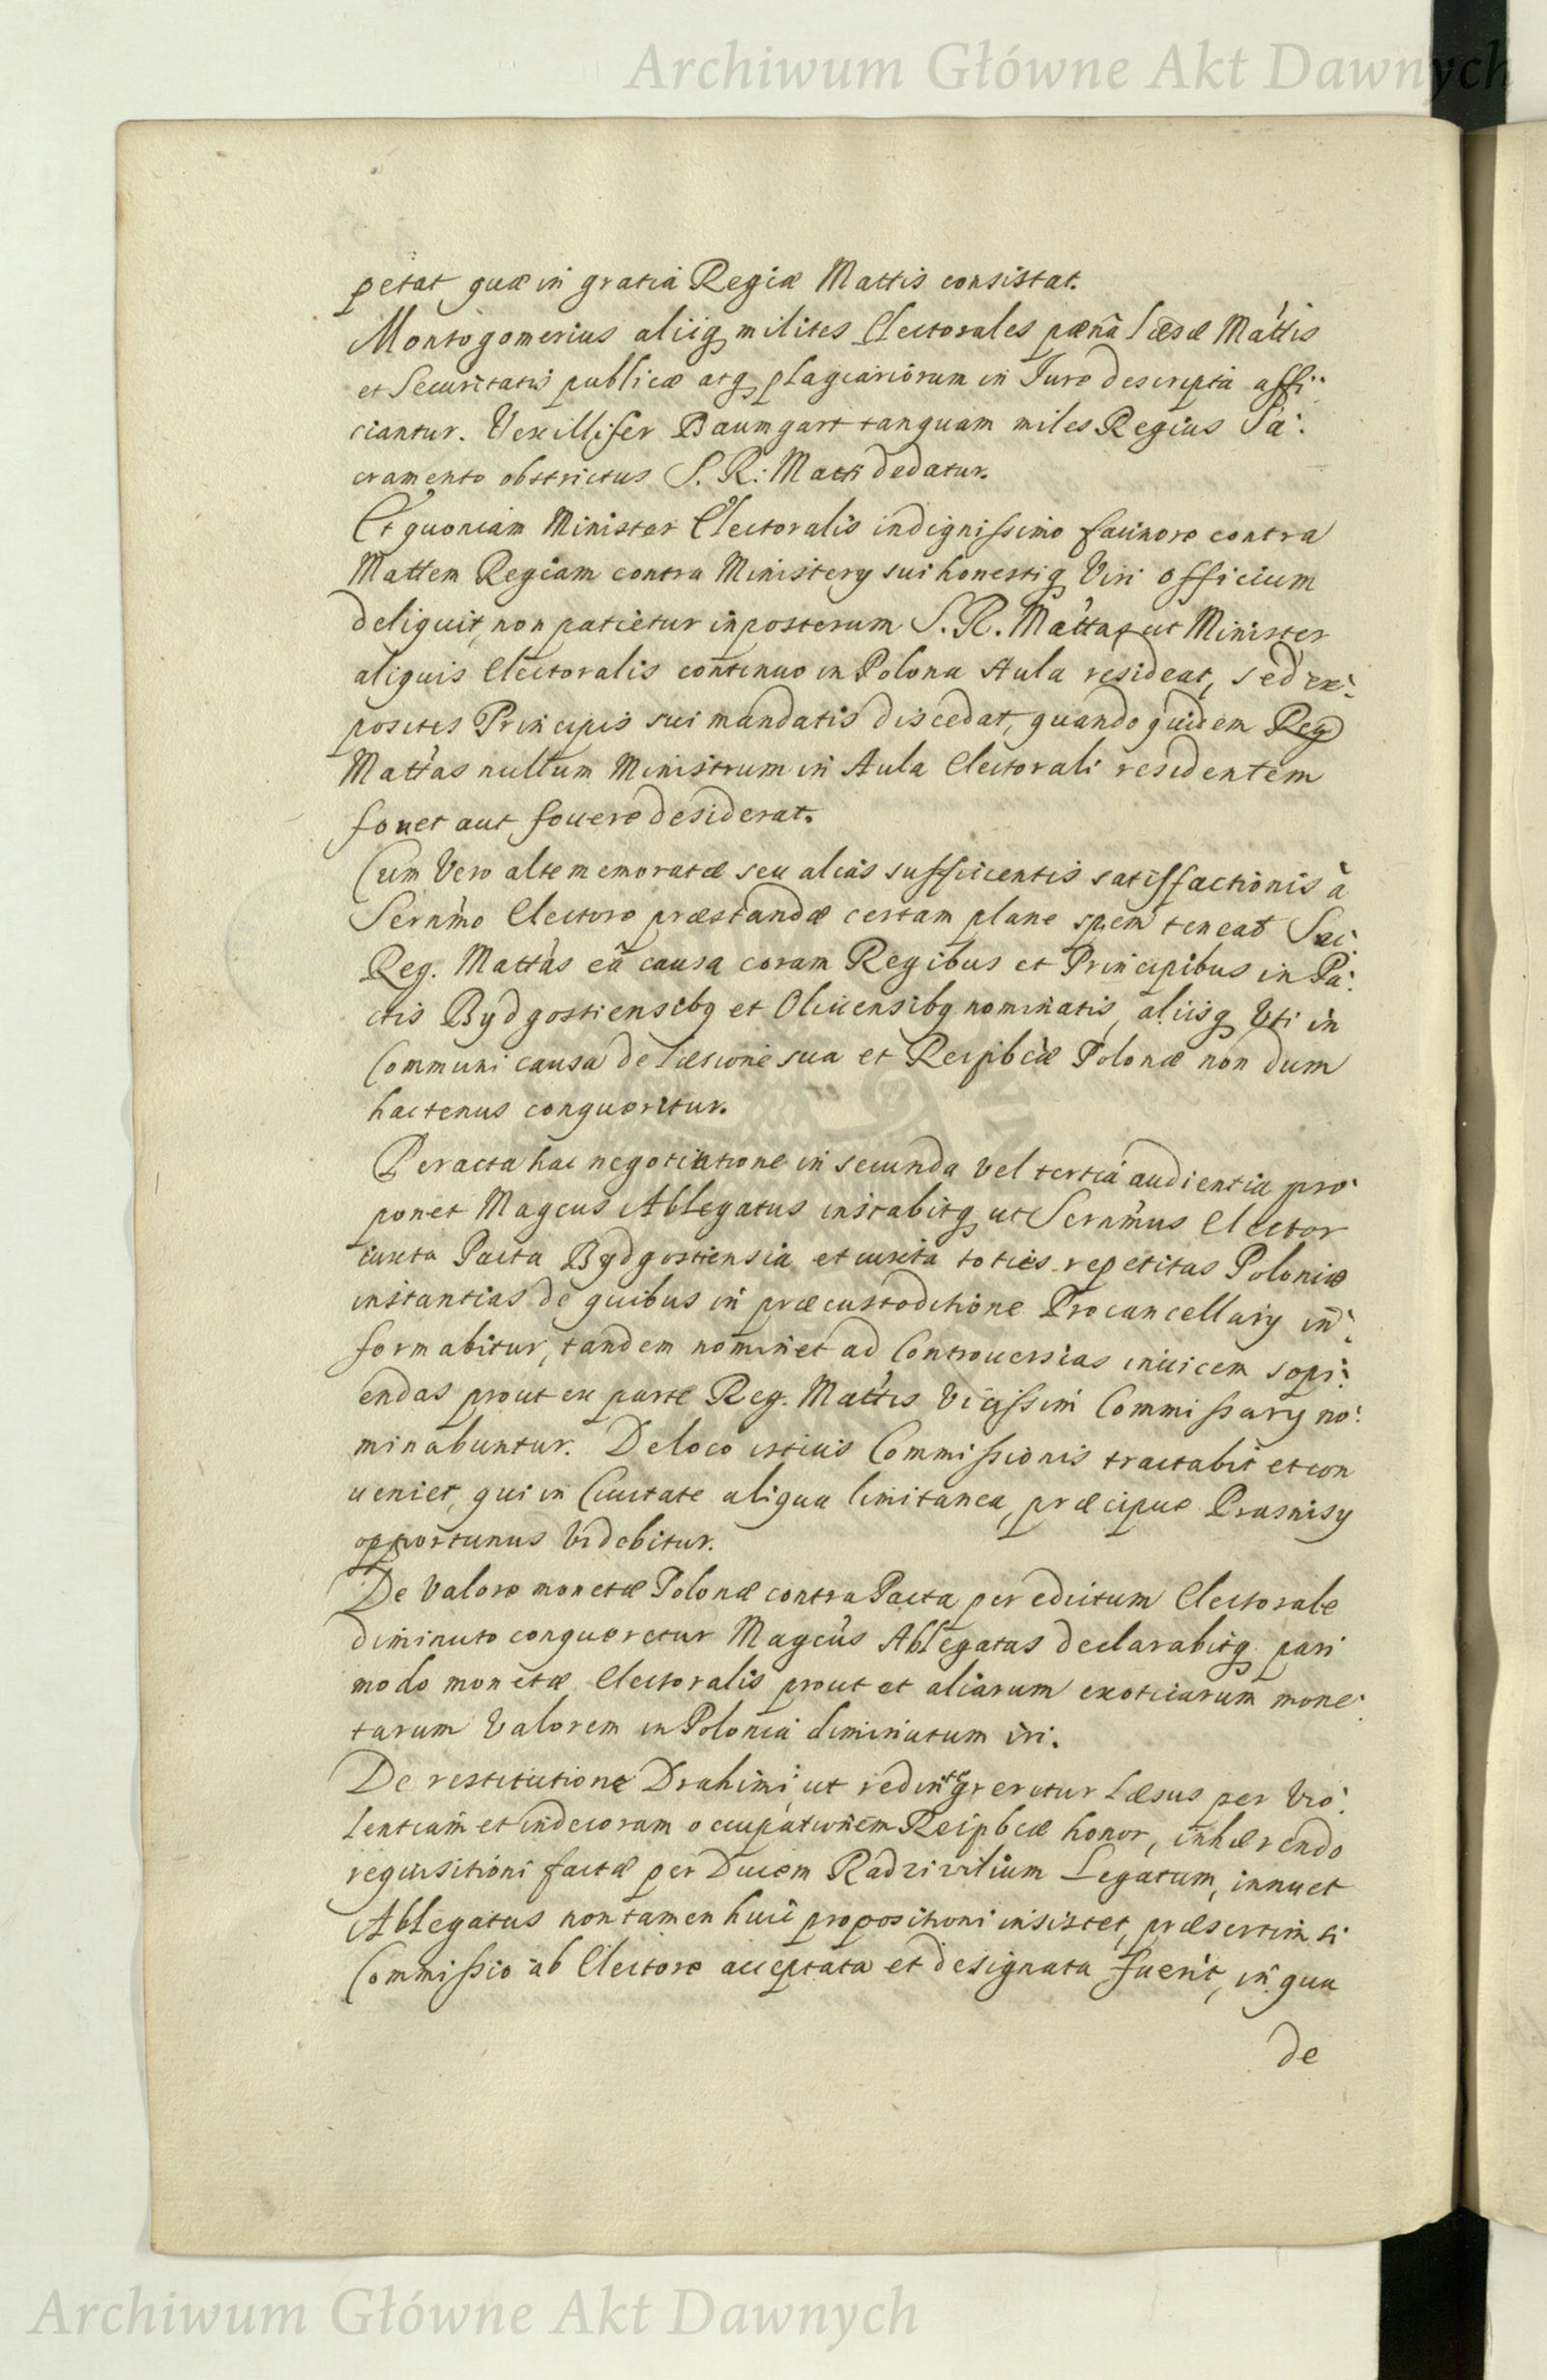 Archiwum Główne Akt Dawnych
petat quæ in gratia Regiæ Mattis consistat.
Montogomerius aliiq milites Electorales pœna læsæ Mattis
et Securitatis publicæ atq plagiariorum in Jure descripta affi:
ciantur. Vexillifer Baumgart tanquam miles Regius Sa:
cramento obstrictus S. R: Matti dedatur.
Et quoniam Minister Electoralis indignissimo facinore contra
Mattem Regiam contra Ministery sui honestiq Viri officium
deliquit, non patietur inposterum S. R. Mattas ut Minister
aliquis Electoralis continuo in Polona Aula resideat, sed ex:
positis Principis sui mandatis discedat, quando quidem Reg
Mattas nullum Ministrum in Aula Electorali residentem
fouet aut fouere desiderat.
Cum Vero alte memoratæ seu alias sufficientis satisfactionis à
Sernmo Electore præstandæ certam plane spem teneat Sac:
Reg. Mattas eã causa coram Regibus et Principibus in Pa:
ctis Bydgostiensibq et Oliuensibq nominatis, aliisq Vti in
Communi causa de læsione sua et Reipbcæ Polonæ non dum
hactenus conquoritur.
Peracta hac negotiatione in secunda vel tertia audientia pro:
ponet Magcus Ablegatus instabitq ut Sernmus Elector
iuxta Pacta Bydgostiensia et iuxta toties repetitas Poloniæ
instantias de quibus in præcustoditione Procancellary in:
formabitur, tandem nominet ad Controuersias inuicem sopi:
endas prout ex parte Reg. Mattis Vicissim Commissary no:
minabuntur. De loco istius Commissionis tractabit et con
ueniet, qui in Ciuitate aliqua limitanea, præcipue Prasnisy
opportunus Videbitur.
De Valore monetæ Polonæ contra Pacta per edictum Electorale
diminuto conqueretur Magcus Ablegatus declarabitq pari
modo monetæ Electoralis prout et aliarum exoticarum mone:
tarum Valorem in Polonia diminutum iri.
De restitutione Drahimi, ut redintegreretur læsus per Vio:
lentiam et indecoram occupationem Reipbcæ honor, inhærendo
requisitioni factæ per Ducem Radzivilium Legatum, innuet
Ablegatus non tamen huic propositioni insistet, præsertim si
Commissio ab Electore acceptata et designata fuerit, in qua
de
Archiwum Główne Akt Dawnych